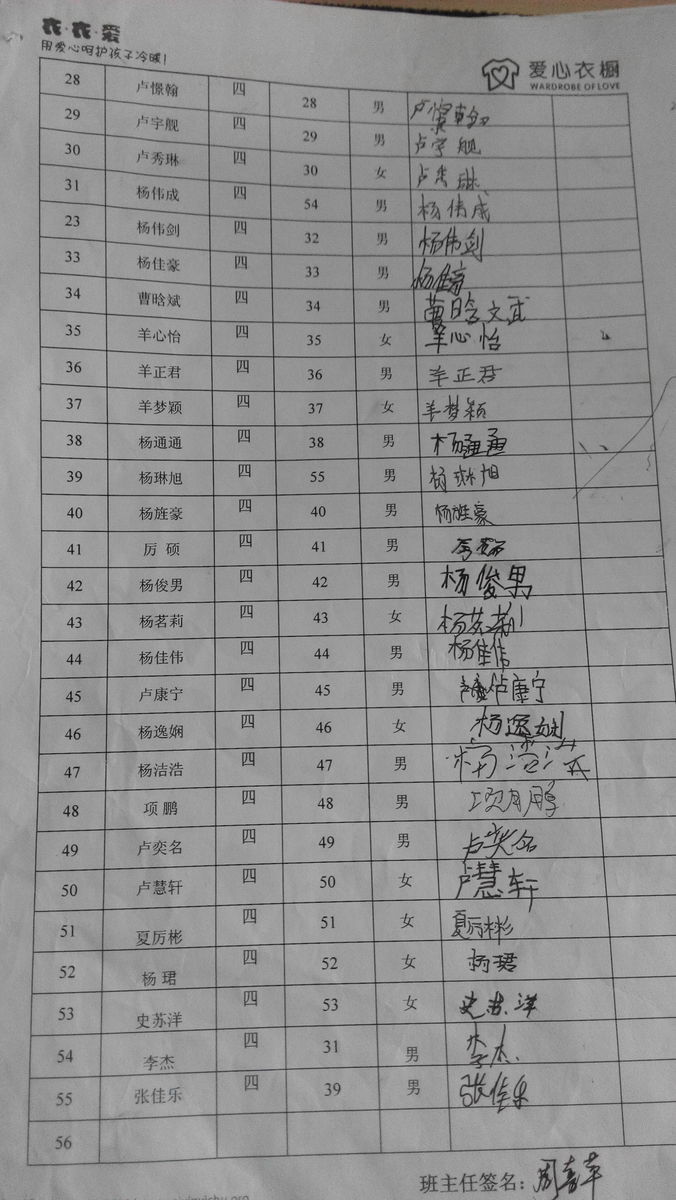 衣·衣·爱
用爱心呵护孩子冷暖!
爱心衣橱
WARDROBE OF LOVE
28 卢憬翰 四 28 男 卢憬翰
29 卢宇舰 四 29 男 卢宇舰
30 卢秀琳 四 30 女 卢秀琳
31 杨伟成 四 54 男 杨伟成
23 杨伟剑 四 32 男 杨伟剑
33 杨佳豪 四 33 男 杨佳豪
34 曹晗斌 四 34 男 曹晗斌
35 羊心怡 四 35 女 羊心怡
36 羊正君 四 36 男 羊正君
37 羊梦颖 四 37 女 羊梦颖
38 杨通通 四 38 男 杨通通
39 杨琳旭 四 55 男 杨琳旭
40 杨旌豪 四 40 男 杨旌豪
41 厉 硕 四 41 男
42 杨俊男 四 42 男 杨俊男
43 杨茗莉 四 43 女 杨茗莉
44 杨佳伟 四 44 男 杨佳伟
45 卢康宁 四 45 男 卢康宁
46 杨逸娴 四 46 女 杨逸娴
47 杨洁浩 四 47 男 杨洁浩
48 项 鹏 四 48 男 项鹏
49 卢奕名 四 49 男 卢奕名
50 卢慧轩 四 50 女 卢慧轩
51 夏厉彬 四 51 女 夏厉彬
52 杨 珺 四 52 女 杨珺
53 史苏洋 四 53 女 史苏洋
54 李杰 四 31 男 李杰
55 张佳乐 四 39 男 张佳乐
56
班主任签名: 周喜萍